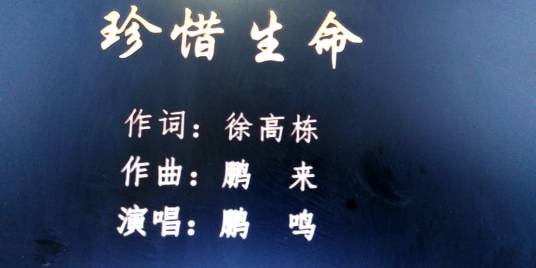 珍惜生命
作词：徐高栋
作曲：鹏 来
演唱：鹏 鸣